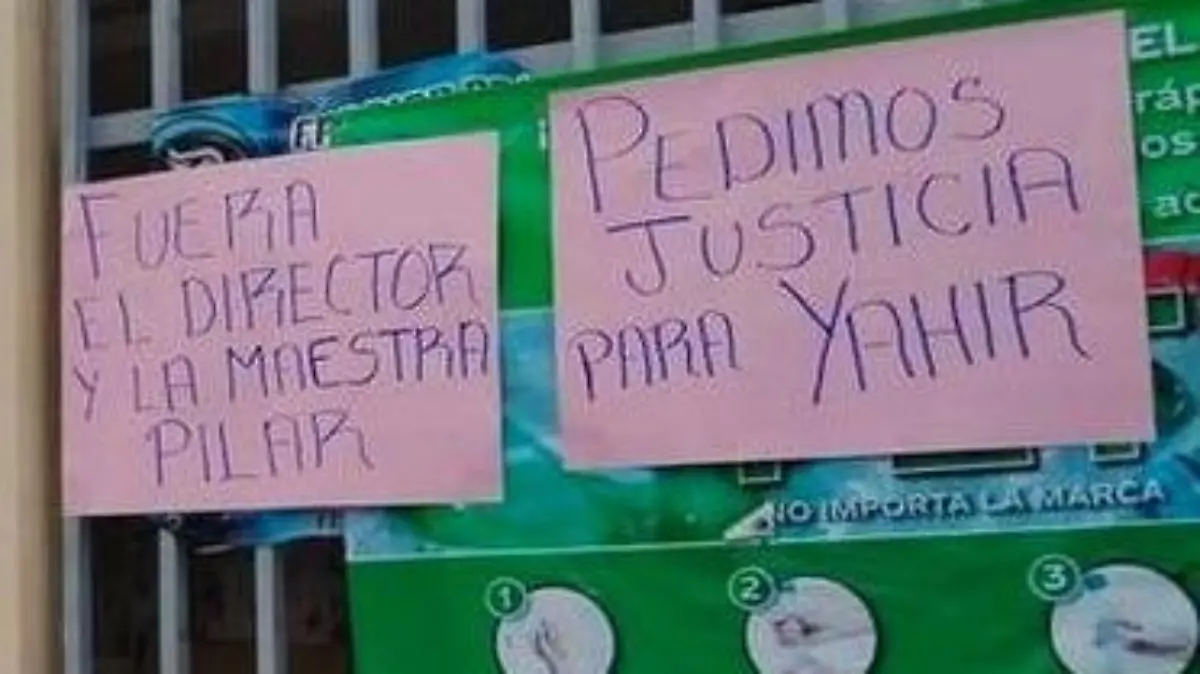 FUERA
EL DIRECTOR
Y LA MAESTRA
PILAR
PEDIMOS
JUSTICIA
PARA YAHIR
EL
NO IMPORTA LA MARCA
1
2
3